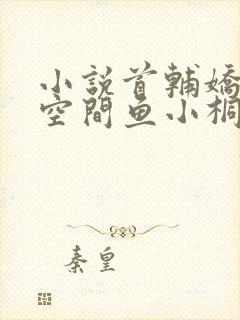 小說首輔嬌
空間鱼小桐
秦皇